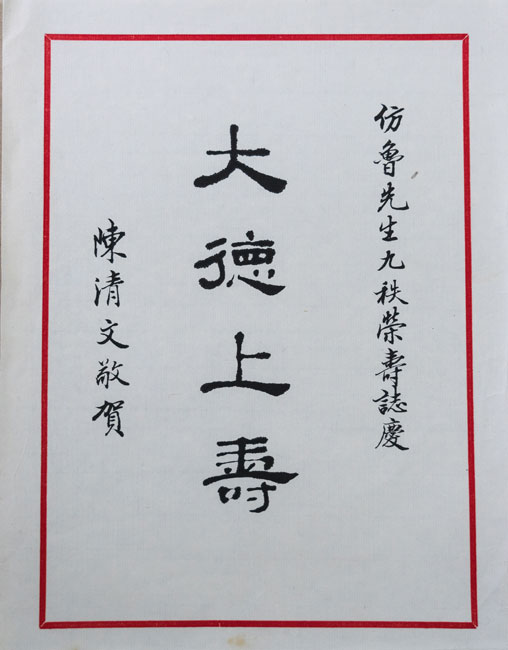 仿魯先生九秩榮壽誌慶
大德上壽
陳清文敬賀